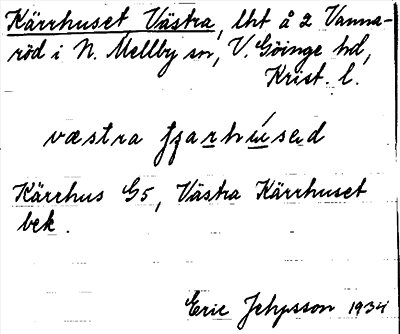 Kärrhuset Västra, lht å 2 Vanna-
röd i N. Mellby sn, V. Göinge hd,
Krist. l.
Kärrhus G5, Västra Kärrhuset
bek.
Eric Jehpsson 1934